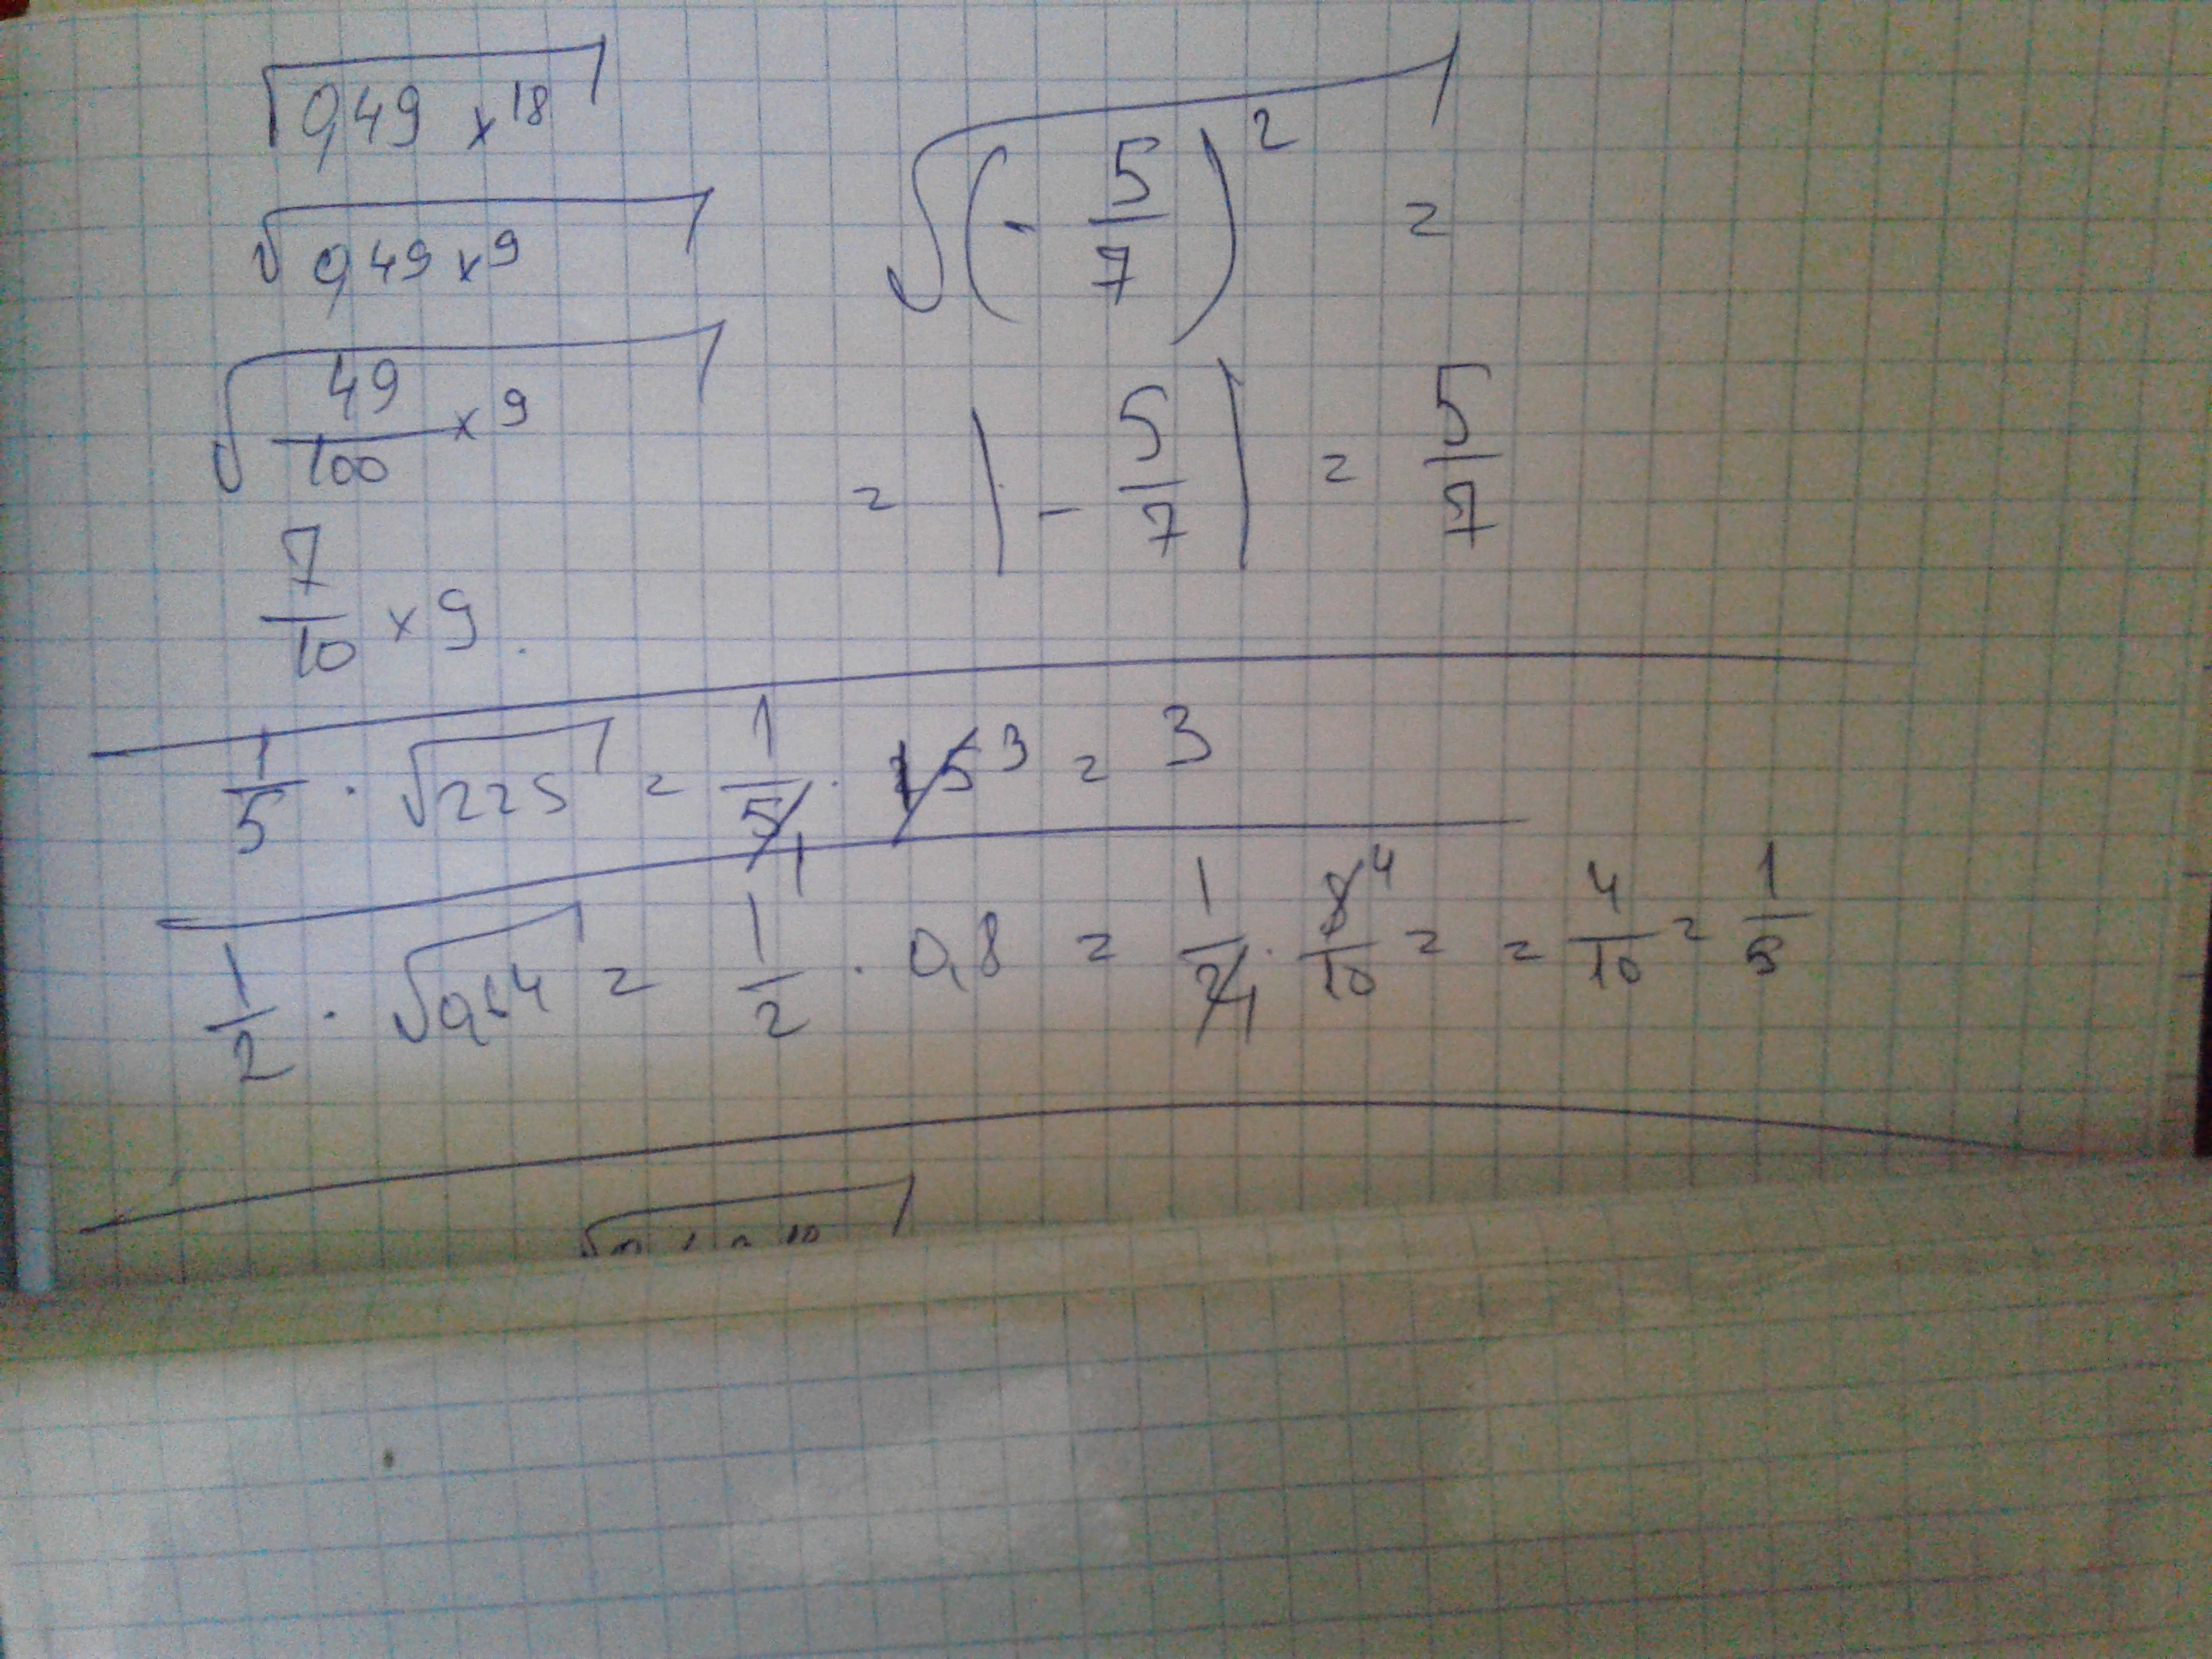 √0,49 x¹⁸
√0,49 x⁹
√49/100 x⁹
7/10 x 9.
√(-5/7)² =
= |-5/7| = 5/7
1/5 · √225 = 1/5 1 · 15 3 = 3
1/2 · √0,64 = 1/2 · 0,8 = 1/2 1 · 8 4/10 = = 4/10 = 1/5